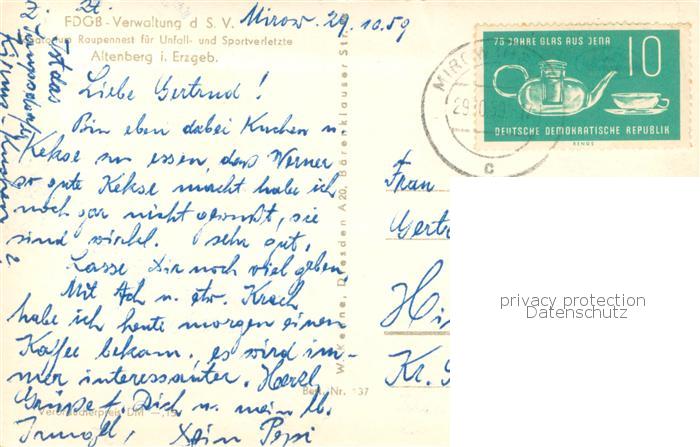 z. Zt.
FDGB-Verwaltung d S. V. Mirow. 29.10.59
Sanatorium Raupennest für Unfall- und Sportverletzte
Altenberg i. Erzgeb.
Liebe Gertrud!
Bin eben dabei Kuchen u.
Kekse zu essen, dass Werner
so gute Kekse macht habe ich
noch gar nicht gewußt, sie
sind wirkl. sehr gut,
Lasse Dir noch viel geben,
Mit Ach u. etw. Krach
habe ich heute morgen einen
Kaffee bekom., es wird im-
mer interessanter. Herzl.
Grüße f. Dich u. mein lb.
Dein Pepi
Ist das
Verbraucherpreis DM —,15
Best. Nr. 137
W. Kenne, Dresden A20, Bärenklauser St
MIROW
29.10.59
c
75 JAHRE GLAS AUS JENA
10
DEUTSCHE DEMOKRATISCHE REPUBLIK
BENGS
Frau
Gertr
Hi
Kr. G
privacy protection
Datenschutz